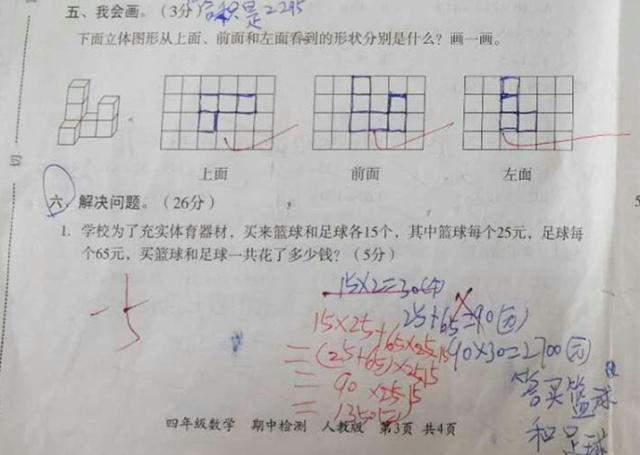 五、我会画。（3分）
下面立体图形从上面、前面和左面看到的形状分别是什么？画一画。
上面
前面
左面
六、解决问题。（26分）
1. 学校为了充实体育器材，买来篮球和足球各15个，其中篮球每个25元，足球每
个65元，买篮球和足球一共花了多少钱？（5分）
-5
15×2=30(个)
25+65=90(元)
90×30=2700(元)
15×25+65×15
=(25+65)×15
=90×15
=1350(元)
答买篮球
和足球
四年级数学 期中检测 人教版 第3页 共4页